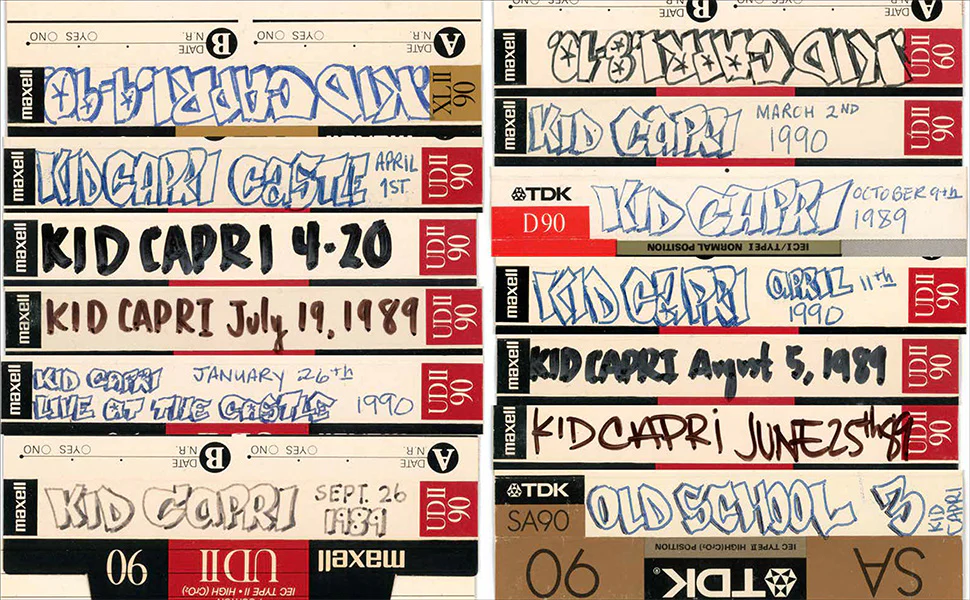 A N.R. DATE YES NO B N.R. DATE YES NO
maxell KID CAPRI XLII 90
maxell KID CAPRI CASTLE APRIL 1ST. UDII 90
maxell KID CAPRI 4-20 UDII 90
maxell KID CAPRI July 19, 1989 UDII 90
maxell KID CAPRI JANUARY 26th UDII 90
LIVE AT THE CASTLE 1990
A N.R. DATE YES NO B N.R. DATE YES NO
maxell KID CAPRI SEPT. 26 1989 UDII 90
maxell UDII 90
IEC TYPE II • HIGH (CrO₂)
A N.R. DATE B N.R. DATE
maxell KID CAPRI UDII 60
maxell KID CAPRI MARCH 2ND 1990 UDII 90
TDK D90 KID CAPRI OCTOBER 9th 1989
IEC I/TYPE I NORMAL POSITION
maxell KID CAPRI APRIL 11th 1990 UDII 90
maxell KID CAPRI August 5, 1989 UDII 90
maxell KID CAPRI JUNE 25th 89 UDII 90
TDK SA90 OLD SCHOOL 3 KID CAPRI
IEC TYPE II HIGH (CrO₂) POSITION
SA TDK 90